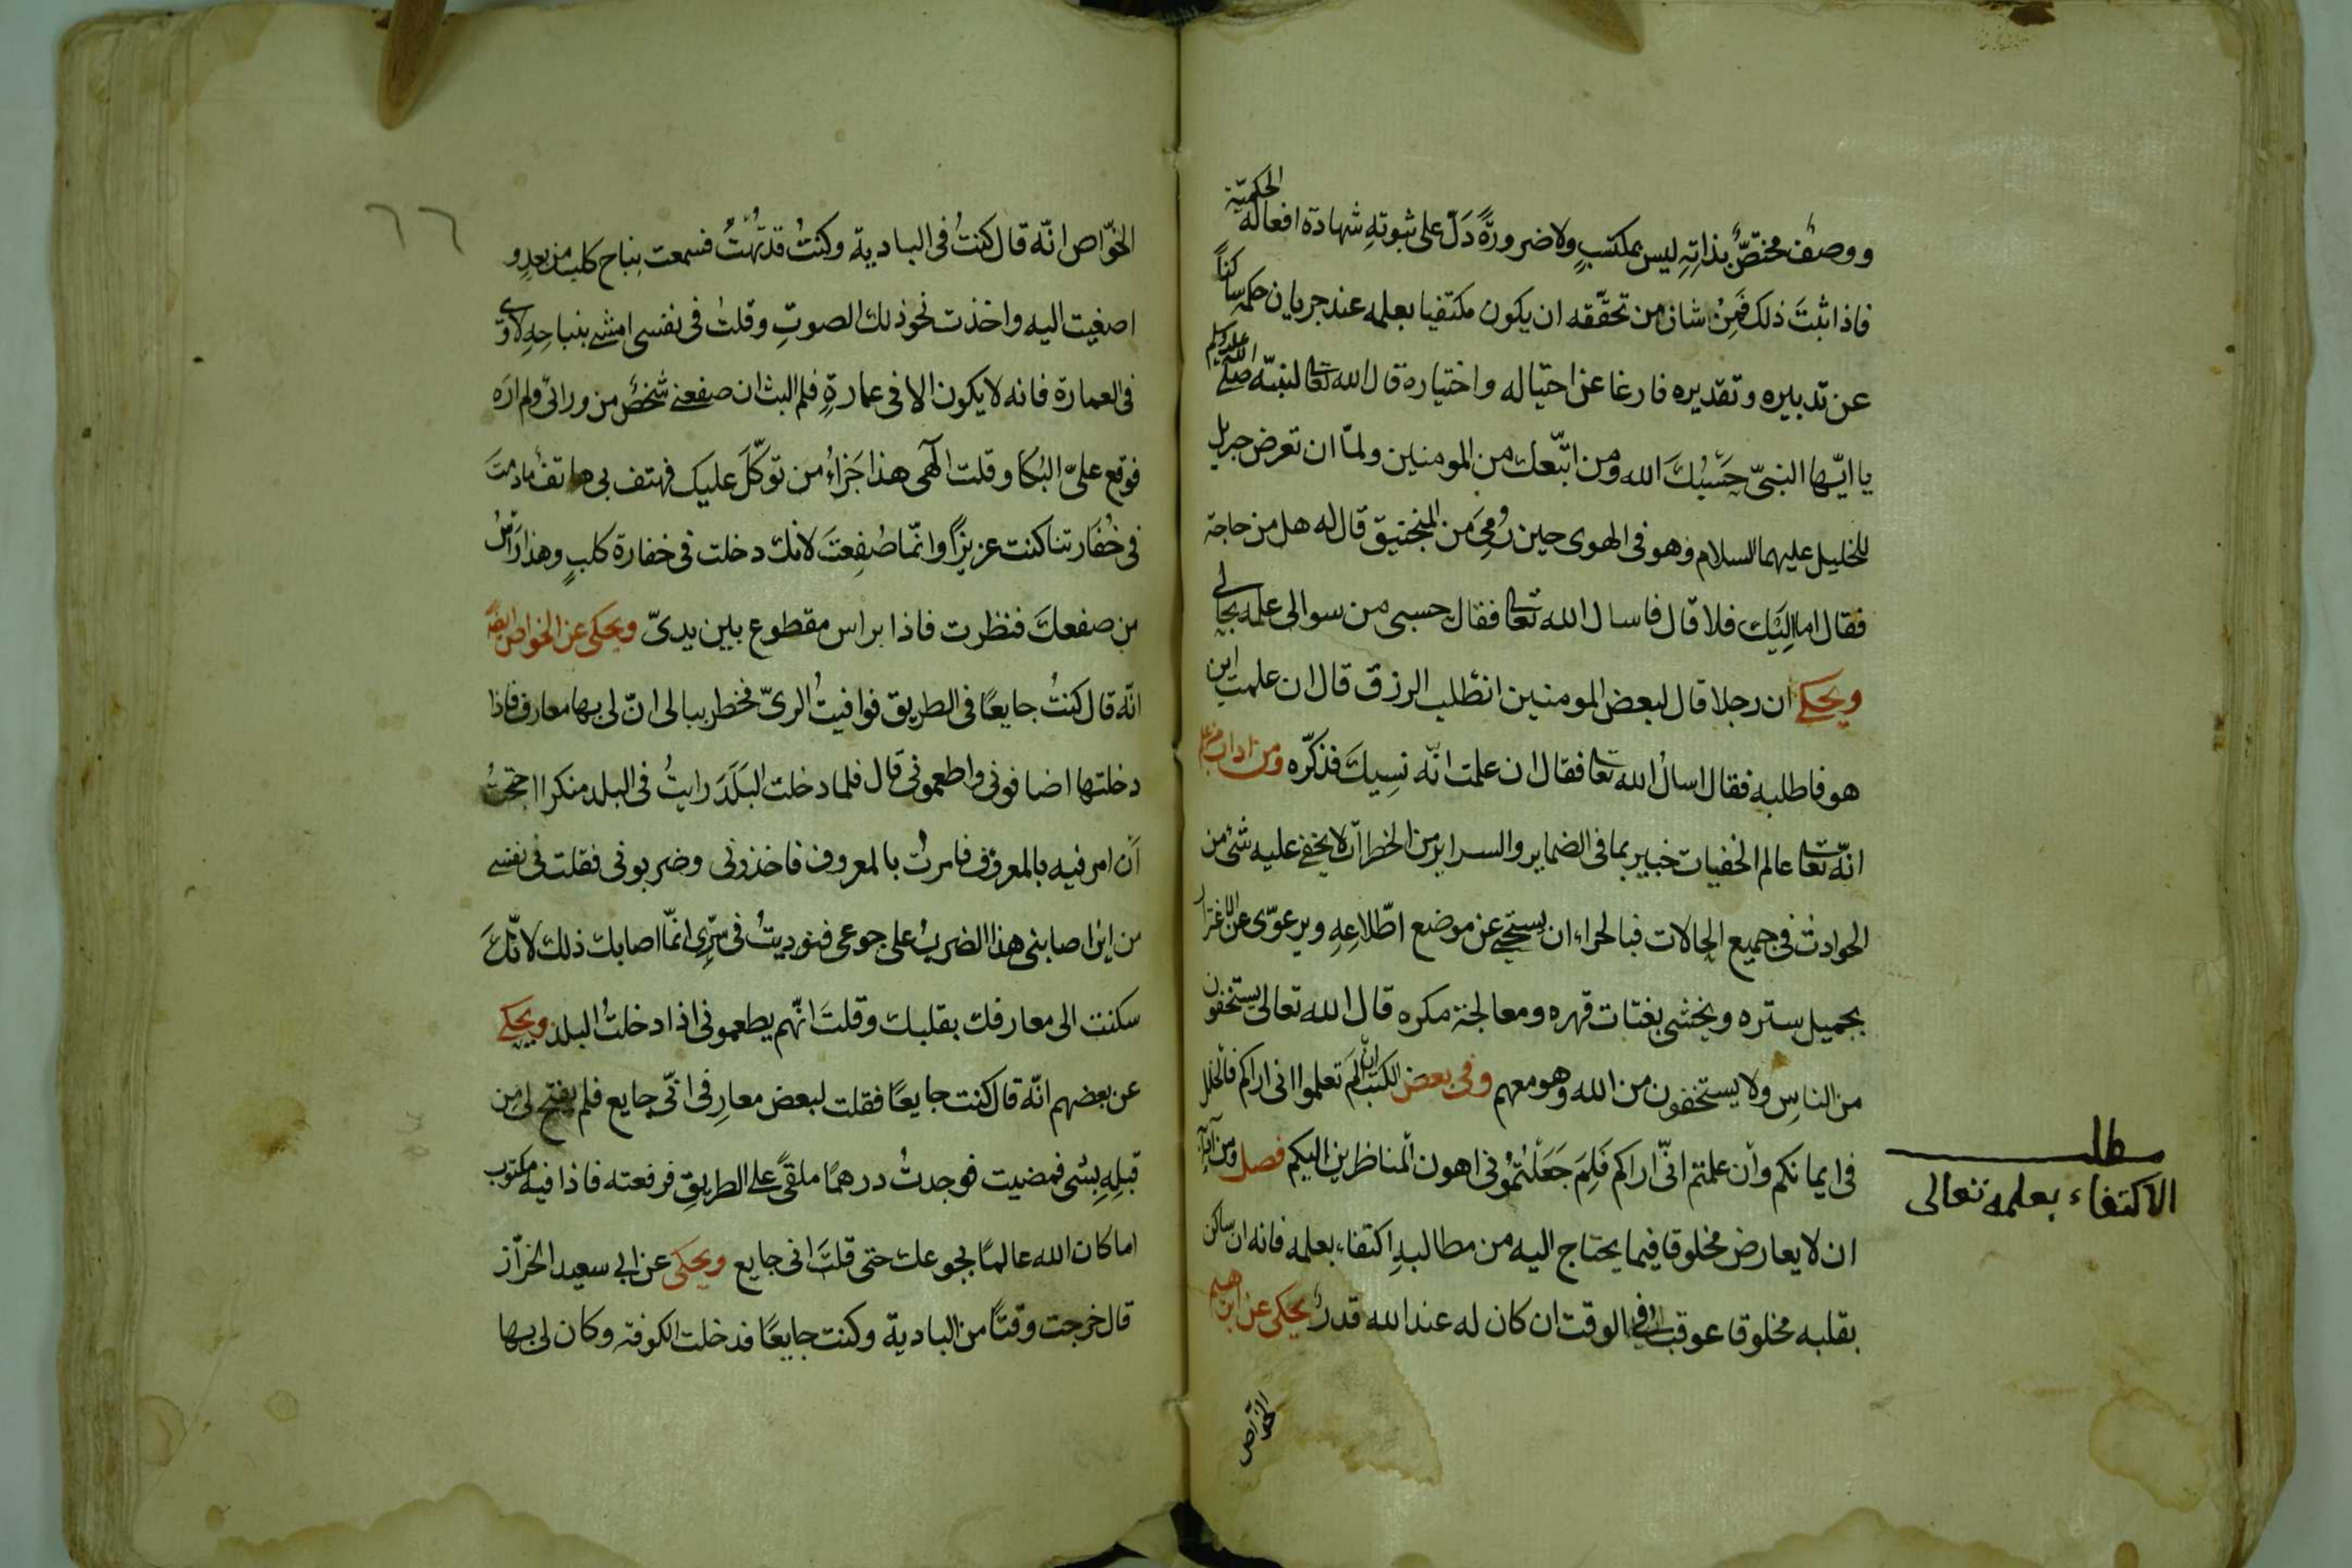 ووصفٌ مختصٌّ بذاتِهِ ليس بمكتسبٍ ولا ضرورةً دَلّ على ثبوتهِ شهادة افعاله الحكميّة
فاذا ثبتَ ذلك فَمِنْ شان من تحقّقه ان يكون مكتفيا بعلمه عند جريان حكمه ساكنًا
عن تدبيره وتقديره فارغا عن احتياله واختياره قال الله تعالى لنبيّه صلى الله عليه وسلم
يا ايّها النبىّ حَسْبُكَ الله ومن اتّبعك من المومنين ولمّا ان تعرض جبريل
للخليل عليهما السلام وهو فى الهوى حين رُمِىَ من المنجنيق قال له هل من حاجة
فقال اما اِلَيْك فلا قال فاسال الله تعالى فقال حسبى من سوالى علمه بحالى
ويحكى ان رجلا قال لبعض المومنين انطلب الرزق قال ان علمت اين
هو فاطلبه فقال اسال الله تعالى فقال ان علمت انّه نسِيك فذكّره ومن اداب من علم
انّه تعالى عالم الخفيات خبير بما فى الضماير والسراير من الخطرات لا يخفى عليه شئ من
الحوادث فى جميع الحالات فبالحراء ان يستحى عن موضع اطّلاعِهِ ويرعوى عن الاغترار
بجميل ستره ويخشى بغتات قهره ومعالجة مكره قال الله تعالى يستخفون
من الناسِ ولا يستخفون من الله وهو معهم وفى بعض الكتب ان لم تعلموا انى اراكم فالخلل
فى ايمانكم وان علمتم انّى اراكم فَلِمَ جَعَلْتُمُونى اهون الناظرين اليكم فصل ومن آدابه
ان لا يعارض مخلوقا فيما يحتاج اليه من مطالبهِ اكتفاء بعلمه فانه ان ساكن
بقلبه مخلوقا عوقب فى الوقت ان كان له عند الله قدرٌ يحكى عن ابرهيم
الخوّاص
مطلب
الاكتفاء بعلمه تعالى
٦٦
الخوّاص انّه قال كنتُ فى البادية وكنتُ قد تُهْتُ فسمعت بنباح كلب من بعدٍ و
اصغيت اليه واخذت نحو ذلك الصوتِ وقلت فى نفسى امشى بنباحِهِ لاوى
فى العمارة فانه لا يكون الا فى عمارةٍ فلم البث ان صفعنى شخصٌ من ورائى ولم ارَه
فوقع علىّ البُكا وقلت الٓهى هذا جَزاءُ من توكّلَ عليك فهتف بى هاتف مادمتَ
فى خُفَارتنا كنت عزيزًا وانّما صُفِعتَ لانك دخلت فى خفارة كلبٍ وهذا راسُ
من صفعك فنظرت فاذا براس مقطوع بين يدىّ ويحكى عن الخواص ايضًا
انّه قال كنتُ جايعًا فى الطريق فوافيتُ الرىّ فخطر ببالى انّ لى بها معارف فاذا
دخلتها اضافونى واطعمونى قال فلما دخلت البَلَدَ رايتُ فى البلد منكرا احتجتُ
اَن امر فيه بالمعروف فامرتُ بالمعروف فاخذونى وضربونى فقلت فى نفسى
من اين اصابنى هذا الضربُ على جوعى فنوديتُ فى سِرّى انّما اصابك ذلك لانّكَ
سكنت الى معارفك بقلبك وقلتَ انّهم يطعمونى اذا دخلتُ البلد ويحكى
عن بعضهم انّه قال كنت جايعًا فقلت لبعض معارفى انّى جايع فلم يفتح لى من
قبلِهِ بشى فمضيت فوجدتُ درهمًا ملقىً على الطريق فرفعته فاذا فيه مكتوب
اما كان الله عالمًا بجوعك حتى قلتَ انى جايع ويحكى عن ابى سعيد الخرّاز
قال خرجت وقتًا من البادية وكنت جايعًا فدخلت الكوفه وكان لى بها